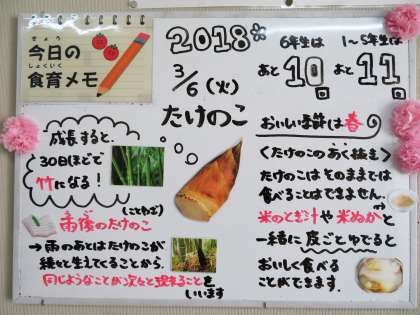 きょう
今日の
しょくいく
食育メモ
2018
3/6(火)
たけのこ
6年生は
あと10日。
1～5年生は
あと11日。
成長すると、
30日ほどで
竹になる!
(ことわざ)
雨後のたけのこ
→雨のあとはたけのこが
続々と生えてくることから、
同じようなことが次々と現れることを
いいます
おいしい季節は春
〈たけのこのあく抜き〉
たけのこはそのままでは
食べることはできません。
米のとぎ汁や米ぬかと
一緒に皮ごとゆでると
おいしく食べる
ことができます。